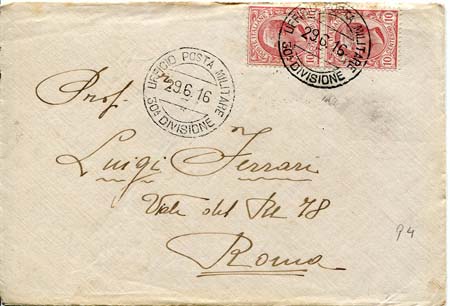 UFFICIO POSTA MILITARE
29.6.16
50ª DIVISIONE
UFFICIO POSTA MILITARE
29.6.16
50ª DIVISIONE
10
10
Prof.
Luigi Ferrari
Viale del Re 78
Roma
94